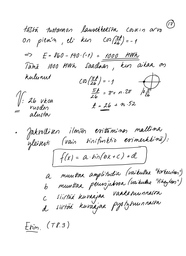 17
tästä tuotannon lausekkeesta cosinin arvo
on pienin, eli kun cos(πt/26) = -1
⇒ E = 860 - 140·(-1) = 1000 MWh
Tämä 1000 MWh saadaan, kun aikaa on
kulunut cos(πt/26) = -1
πt/26 = π + n·2π
t = 26 + n·52
V: 26 viikon
vuoden
alusta
• Jaksollisen ilmiön esittämisen mallina
yleinen (vain sinifunktio esimerkkinä).
f(x) = a sin(bx + c) + d
a muuttaa amplitudia (vaikuttaa "korkeuteen")
b muuttaa perusjaksoa (vaikuttaa "tiheyteen")
c siirtää kuvaajaa vaakasuunnassa
d siirtää kuvaajaa pystysuunnassa
Esim. (T83)